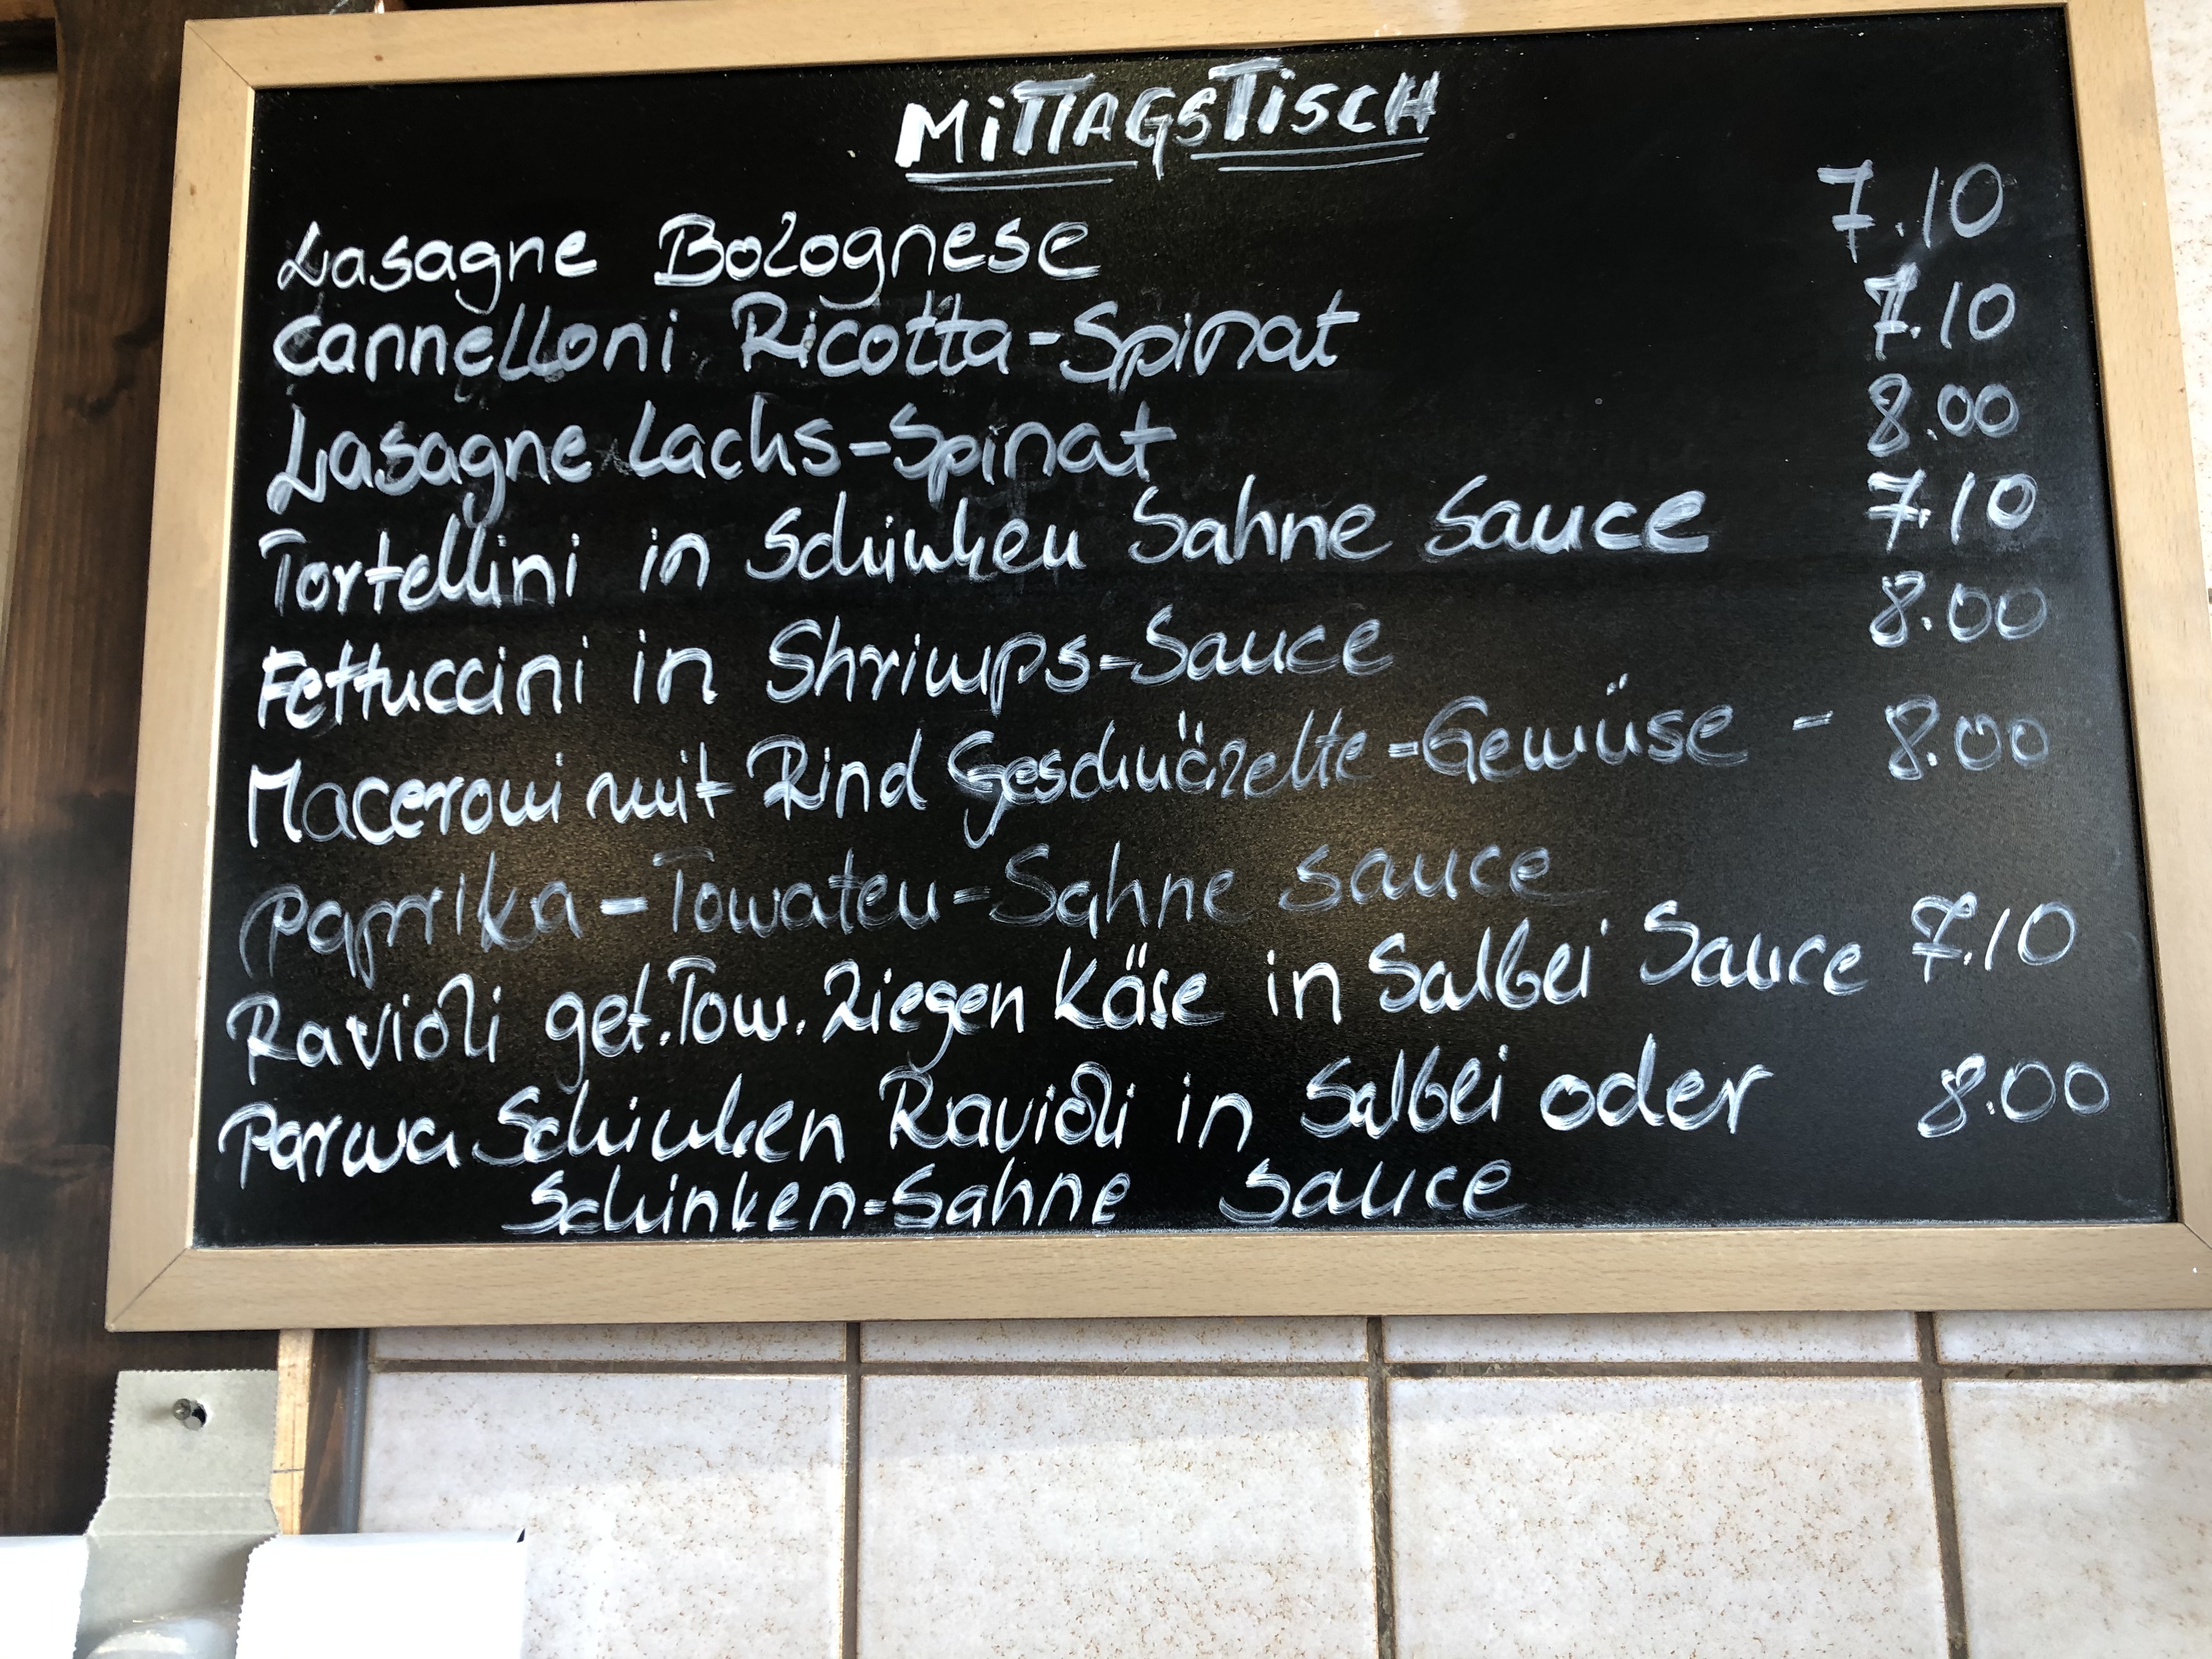 MITTAGSTISCH
Lasagne Bolognese 7.10
Cannelloni Ricotta-Spinat 7.10
Lasagne Lachs-Spinat 8.00
Tortellini in Schinken Sahne Sauce 7.10
Fettuccini in Shrimps-Sauce 8.00
Maceroni mit Rind Geschnäzelte-Gewüse - 8.00
Paprika-Tomaten-Sahne Sauce
Ravioli get.Tom. Ziegen Käse in Salbei Sauce 7.10
Parma Schinken Ravioli in Salbei oder 8.00
Schinken-Sahne Sauce